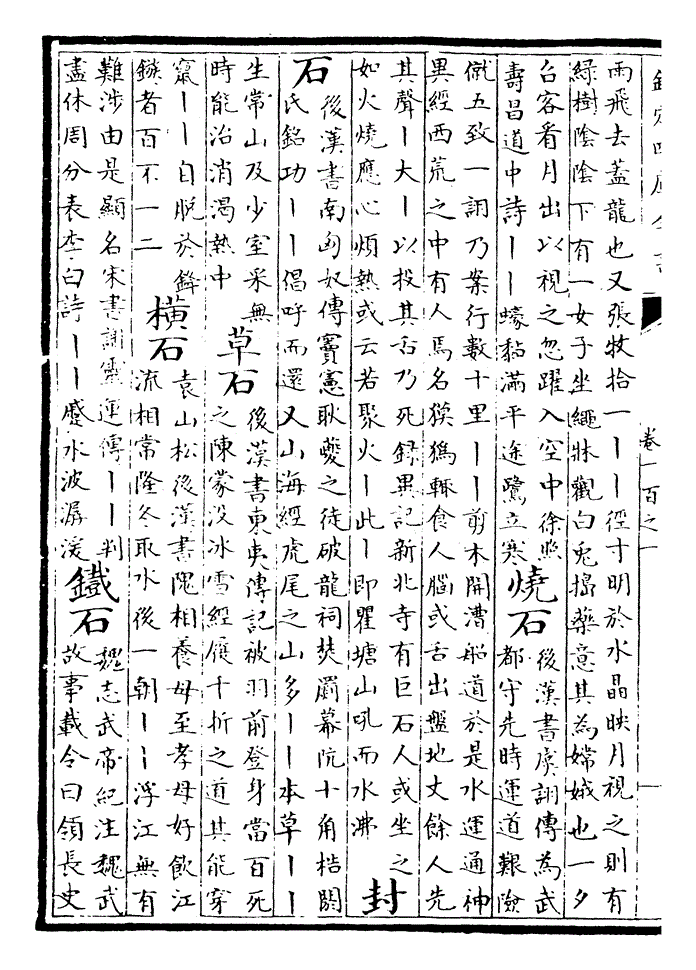 欽定四庫全書 卷一百之一
雨飛去蓋龍也又張牧拾一丨丨徑寸明於水晶映月視之則有
綠樹陰陰下有一女子坐繩牀觀白兔搗藥意其為嫦娥也一夕
召容看月出以視之忽躍入空中徐照
壽昌道中詩丨丨蠔黏滿平途鷺立寒
燒石
後漢書虞詡傳為武
都守先時運道艱險
僦五致一詡乃案行數十里丨丨剪木開漕船道於是水運通神
異經西荒之中有人焉名獏獁輒食人腦或舌出盤地丈餘人先
其聲丨大丨以投其舌乃死錄異記新北寺有巨石人或坐之
如火燒應心煩熱或云若聚火丨此丨即瞿塘山吼而水沸
封
石
後漢書南匈奴傳竇憲耿夔之徒破龍祠焚罽幕阬十角梏閼
氏銘功丨丨倡呼而還又山海經虎尾之山多丨丨本草丨丨
生常山及少室采無
時能治消渴熱中
草石
後漢書東夷傳記被羽前登身當百死
之陳蒙没冰雪經履千折之道其能穿
竄丨丨自脱於鋒
鏃者百不一二
橫石
袁山松後漢書隗相養母至孝母好飲江
流相常隆冬取水後一朝丨丨浮江無有
難涉由是顯名宋書謝靈運傳丨丨判
盡休周分表李白詩丨丨蹙水波潺湲
鐵石
魏志武帝紀注魏武
故事載令曰領長史